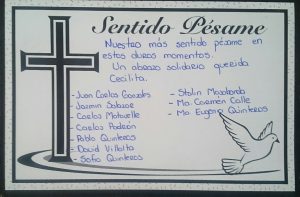 Sentido Pésame
Nuestro más sentido pésame en
estos duros momentos.
Un abrazo solidario querida
Cecilita.
- Juan Carlos Gonzales
- Jazmin Salazar
- Carlos Motovelle
- Carlos Padrón
- Pablo Quinteros
- David Villalta
- Sofia Quinteros
- Stalin
- Ma Carmen Calle
- Ma Eugenia Quinteros